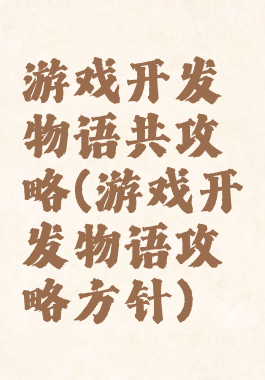 游戏开发
物语共攻
略(游戏开
发物语攻
略方针)